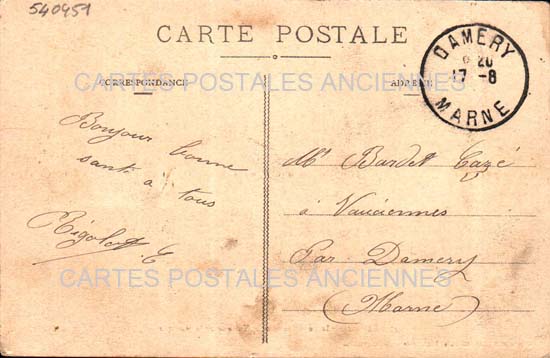 540951
CARTE POSTALE
CORRESPONDANCE
ADRESSE
DAMERY
20
17 -8
MARNE
CARTES POSTALES ANCIENNES
Bonjour bonne
santé a tous
Rigolot E
Mr Bardet Cazé
à Vauciennes
Par Damery
(Marne)
CARTES POSTALES ANCIENNES